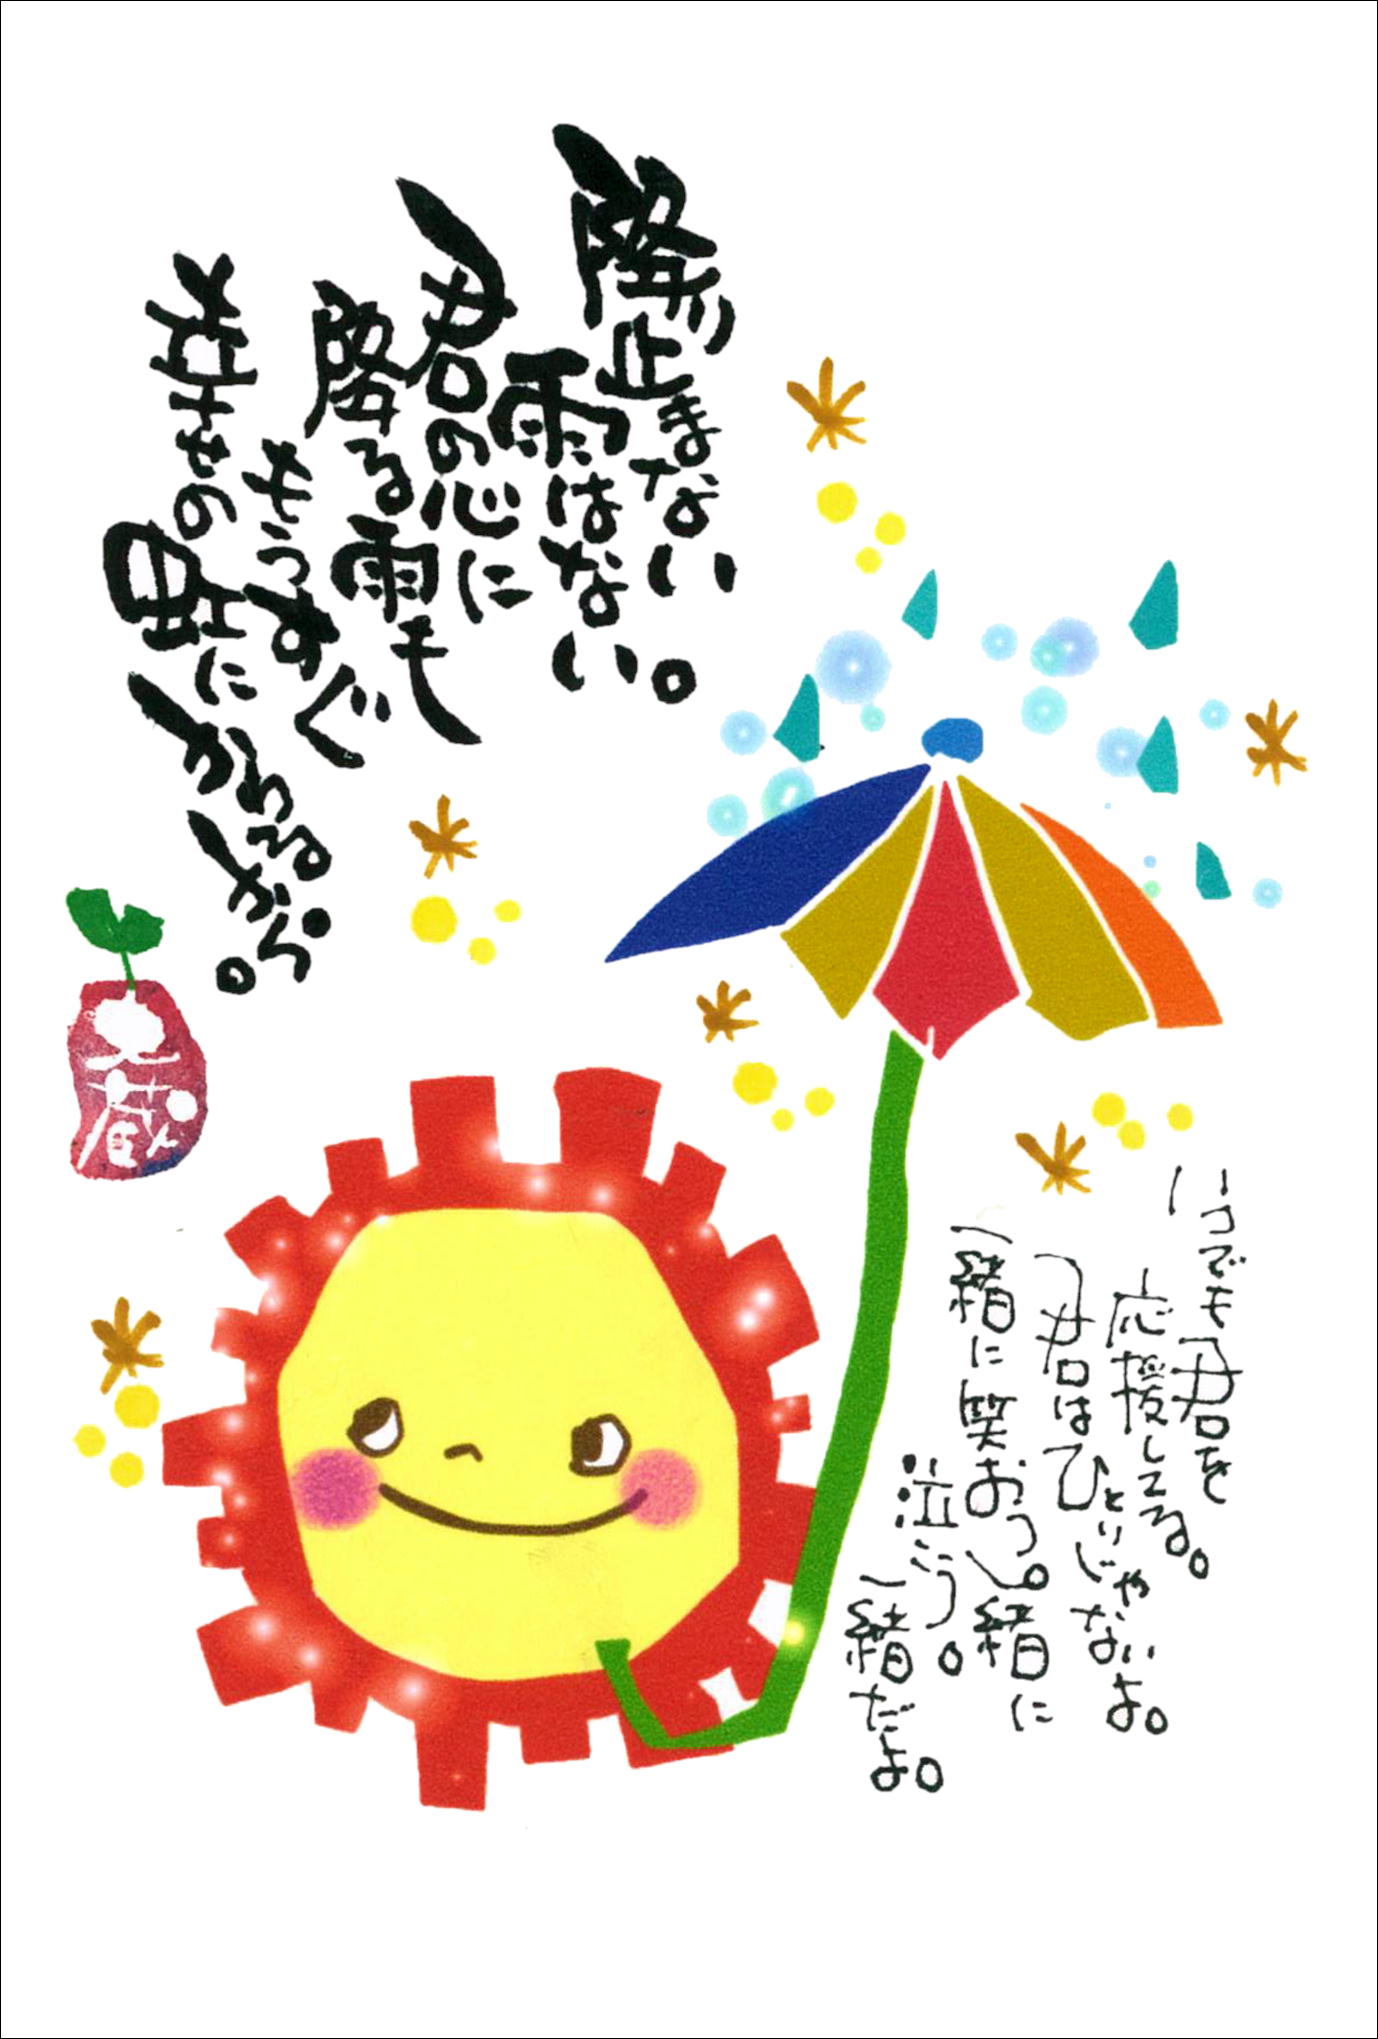 降り止まない
雨はない。
君の心に
降る雨も
もうすぐ
幸せの虹に
かわるから。
いつでも君を
応援してる。
君はひとりじゃないよ。
一緒に笑おう。一緒に
泣こう。
一緒だよ。